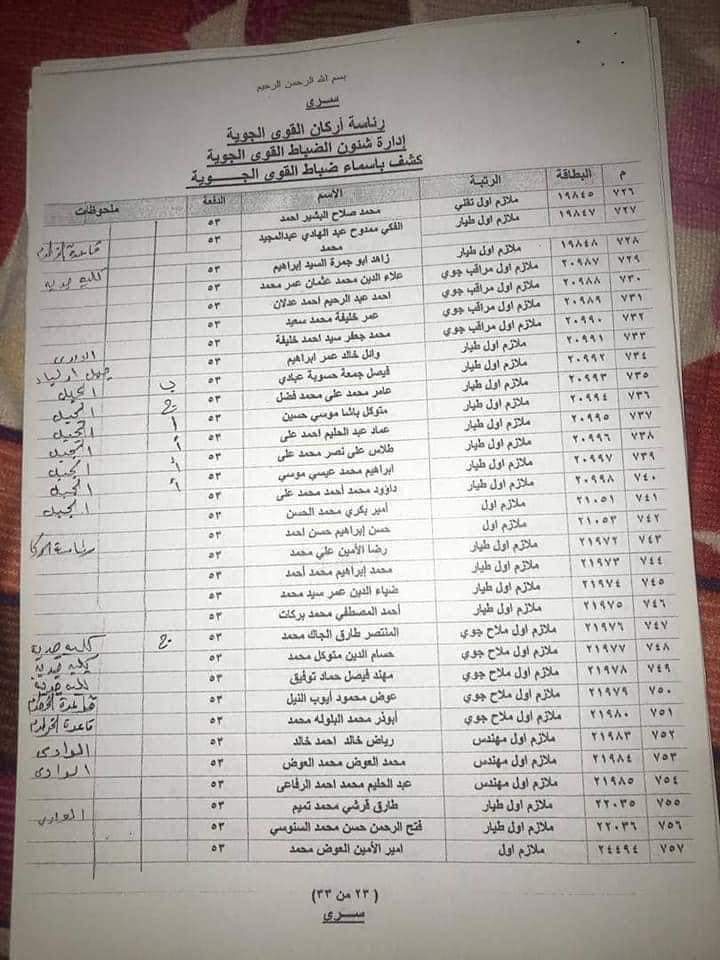 بسم الله الرحمن الرحيم
سرى
رئاسة أركان القوى الجوية
إدارة شئون الضباط القوى الجوية
كشف باسماء ضباط القوى الجـــوية
م البطاقة الرتبة الإسم الدفعة ملحوظات
٧٢٦ ١٩٨٤٥ ملازم اول تقني محمد صلاح البشير احمد ٥٣
٧٢٧ ١٩٨٤٧ ملازم اول طيار الفكي ممدوح عبد الهادي عبدالمجيد محمد ٥٣
٧٢٨ ١٩٨٤٨ ملازم اول طيار زاهد ابو جمرة السيد إبراهيم ٥٣
٧٢٩ ٢٠٩٨٧ ملازم اول مراقب جوي علاء الدين محمد عثمان عمر محمد ٥٣
٧٣٠ ٢٠٩٨٨ ملازم اول مراقب جوي احمد عبد الرحيم احمد عدلان ٥٣
٧٣١ ٢٠٩٨٩ ملازم اول مراقب جوي عمر خليفة محمد سعيد ٥٣
٧٣٢ ٢٠٩٩٠ ملازم اول مراقب جوي محمد جعفر سيد احمد خليفة ٥٣
٧٣٣ ٢٠٩٩١ ملازم اول طيار وائل خالد عمر ابراهيم ٥٣
٧٣٤ ٢٠٩٩٢ ملازم اول طيار فيصل جمعة حسوبة عبادي ٥٣
٧٣٥ ٢٠٩٩٣ ملازم اول طيار عامر محمد على محمد فضل ٥٣ ب
٧٣٦ ٢٠٩٩٤ ملازم اول طيار متوكل باشا موسي حسين ٥٣ ج
٧٣٧ ٢٠٩٩٥ ملازم اول طيار عماد عبد الحليم احمد على ٥٣ أ
٧٣٨ ٢٠٩٩٦ ملازم اول طيار طلاس على نصر محمد على ٥٣ أ
٧٣٩ ٢٠٩٩٧ ملازم اول طيار ابراهيم محمد عيسي موسي ٥٣ أ
٧٤٠ ٢٠٩٩٨ ملازم اول طيار داؤود محمد أحمد محمد على ٥٣ أ
٧٤١ ٢١٠٥١ ملازم اول امير بكري محمد الحسن ٥٣
٧٤٢ ٢١٠٥٣ ملازم اول حسن إبراهيم حسن احمد ٥٣
٧٤٣ ٢١٩٧٢ ملازم اول طيار رضا الأمين علي محمد ٥٣
٧٤٤ ٢١٩٧٣ ملازم اول طيار محمد إبراهيم محمد أحمد ٥٣
٧٤٥ ٢١٩٧٤ ملازم اول طيار ضياء الدين عمر سيد محمد ٥٣
٧٤٦ ٢١٩٧٥ ملازم اول طيار أحمد المصطفي محمد بركات ٥٣
٧٤٧ ٢١٩٧٦ ملازم اول ملاح جوي المنتصر طارق الجاك محمد ٥٣ ج
٧٤٨ ٢١٩٧٧ ملازم اول ملاح جوي حسام الدين متوكل محمد ٥٣
٧٤٩ ٢١٩٧٨ ملازم اول ملاح جوي مهند فيصل حماد توفيق ٥٣
٧٥٠ ٢١٩٧٩ ملازم اول ملاح جوي عوض محمود أيوب النيل ٥٣
٧٥١ ٢١٩٨٠ ملازم اول ملاح جوي أبوذر محمد البلوله محمد ٥٣
٧٥٢ ٢١٩٨٣ ملازم اول مهندس رياض خالد احمد خالد ٥٣ الوادى
٧٥٣ ٢١٩٨٤ ملازم اول مهندس محمد العوض محمد العوض ٥٣ الوادى
٧٥٤ ٢١٩٨٥ ملازم اول مهندس عبد الحليم محمد احمد الرفاعى ٥٣
٧٥٥ ٢٢٠٣٥ ملازم اول طيار طارق قرشي محمد تميم ٥٣
٧٥٦ ٢٢٠٣٦ ملازم اول طيار فتح الرحمن حسن محمد السنوسي ٥٣
٧٥٧ ٢٤٤٩٤ ملازم اول امير الأمين العوض محمد ٥٣
(٢٣ من ٣٣)
ســرى